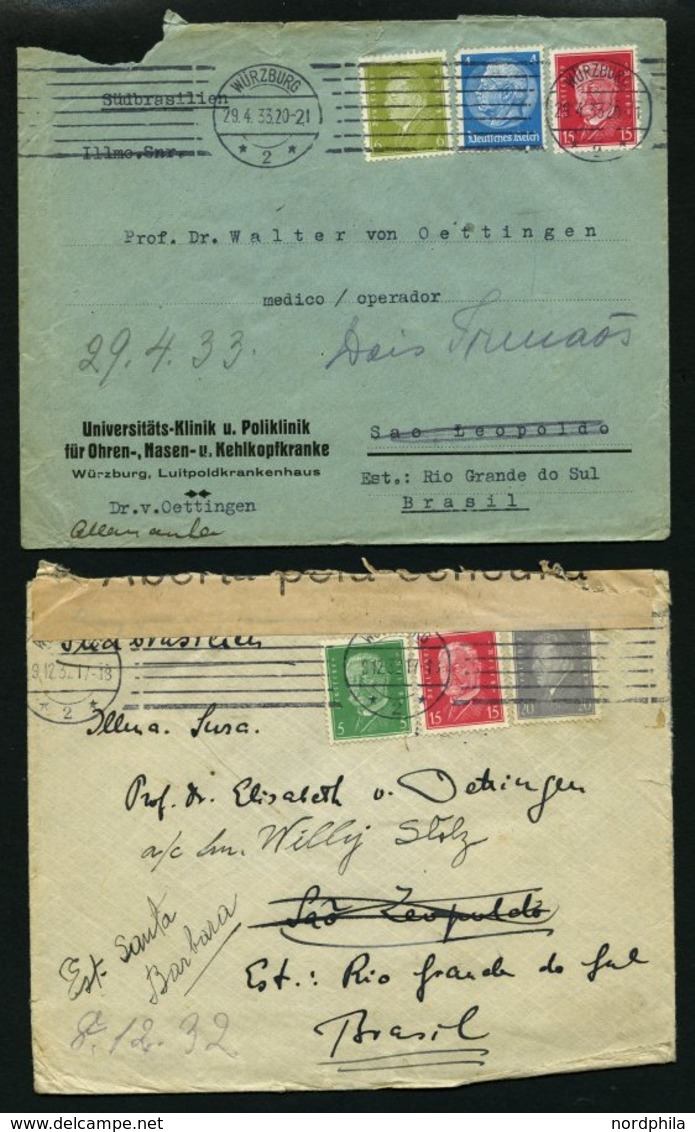 WÜRZBURG
29.4.33.20-21
* 2 *
6 6
4 4
Deutsches Reich
15 15
WÜRZBURG
29.4.33.20-21
Südbrasilien
Illmo.Snr.
Prof. Dr. Walter von Oettingen
medico / operador
29.4.33.
Dois Irmaõs
Universitäts-Klinik u. Poliklinik
für Ohren-, Nasen- u. Kehlkopfkranke
Würzburg, Luitpoldkrankenhaus
Sao Leopoldo
Est.: Rio Grande do Sul
Brasil
Dr.v.Oettingen
Allemanha
Aberta pela censura
Südbrasilien
9.12.32.17-18
* 2 *
5 5
15 15
20 20
Illma. Snra.
Prof. Dr. Elisabeth v. Oettingen
a/c Snr. Willy Stolz
São Leopoldo
Est. Santa
Barbara
Est.: Rio Grande do Sul
8.12.32
Brasil
nordphila
www.delcampe.net